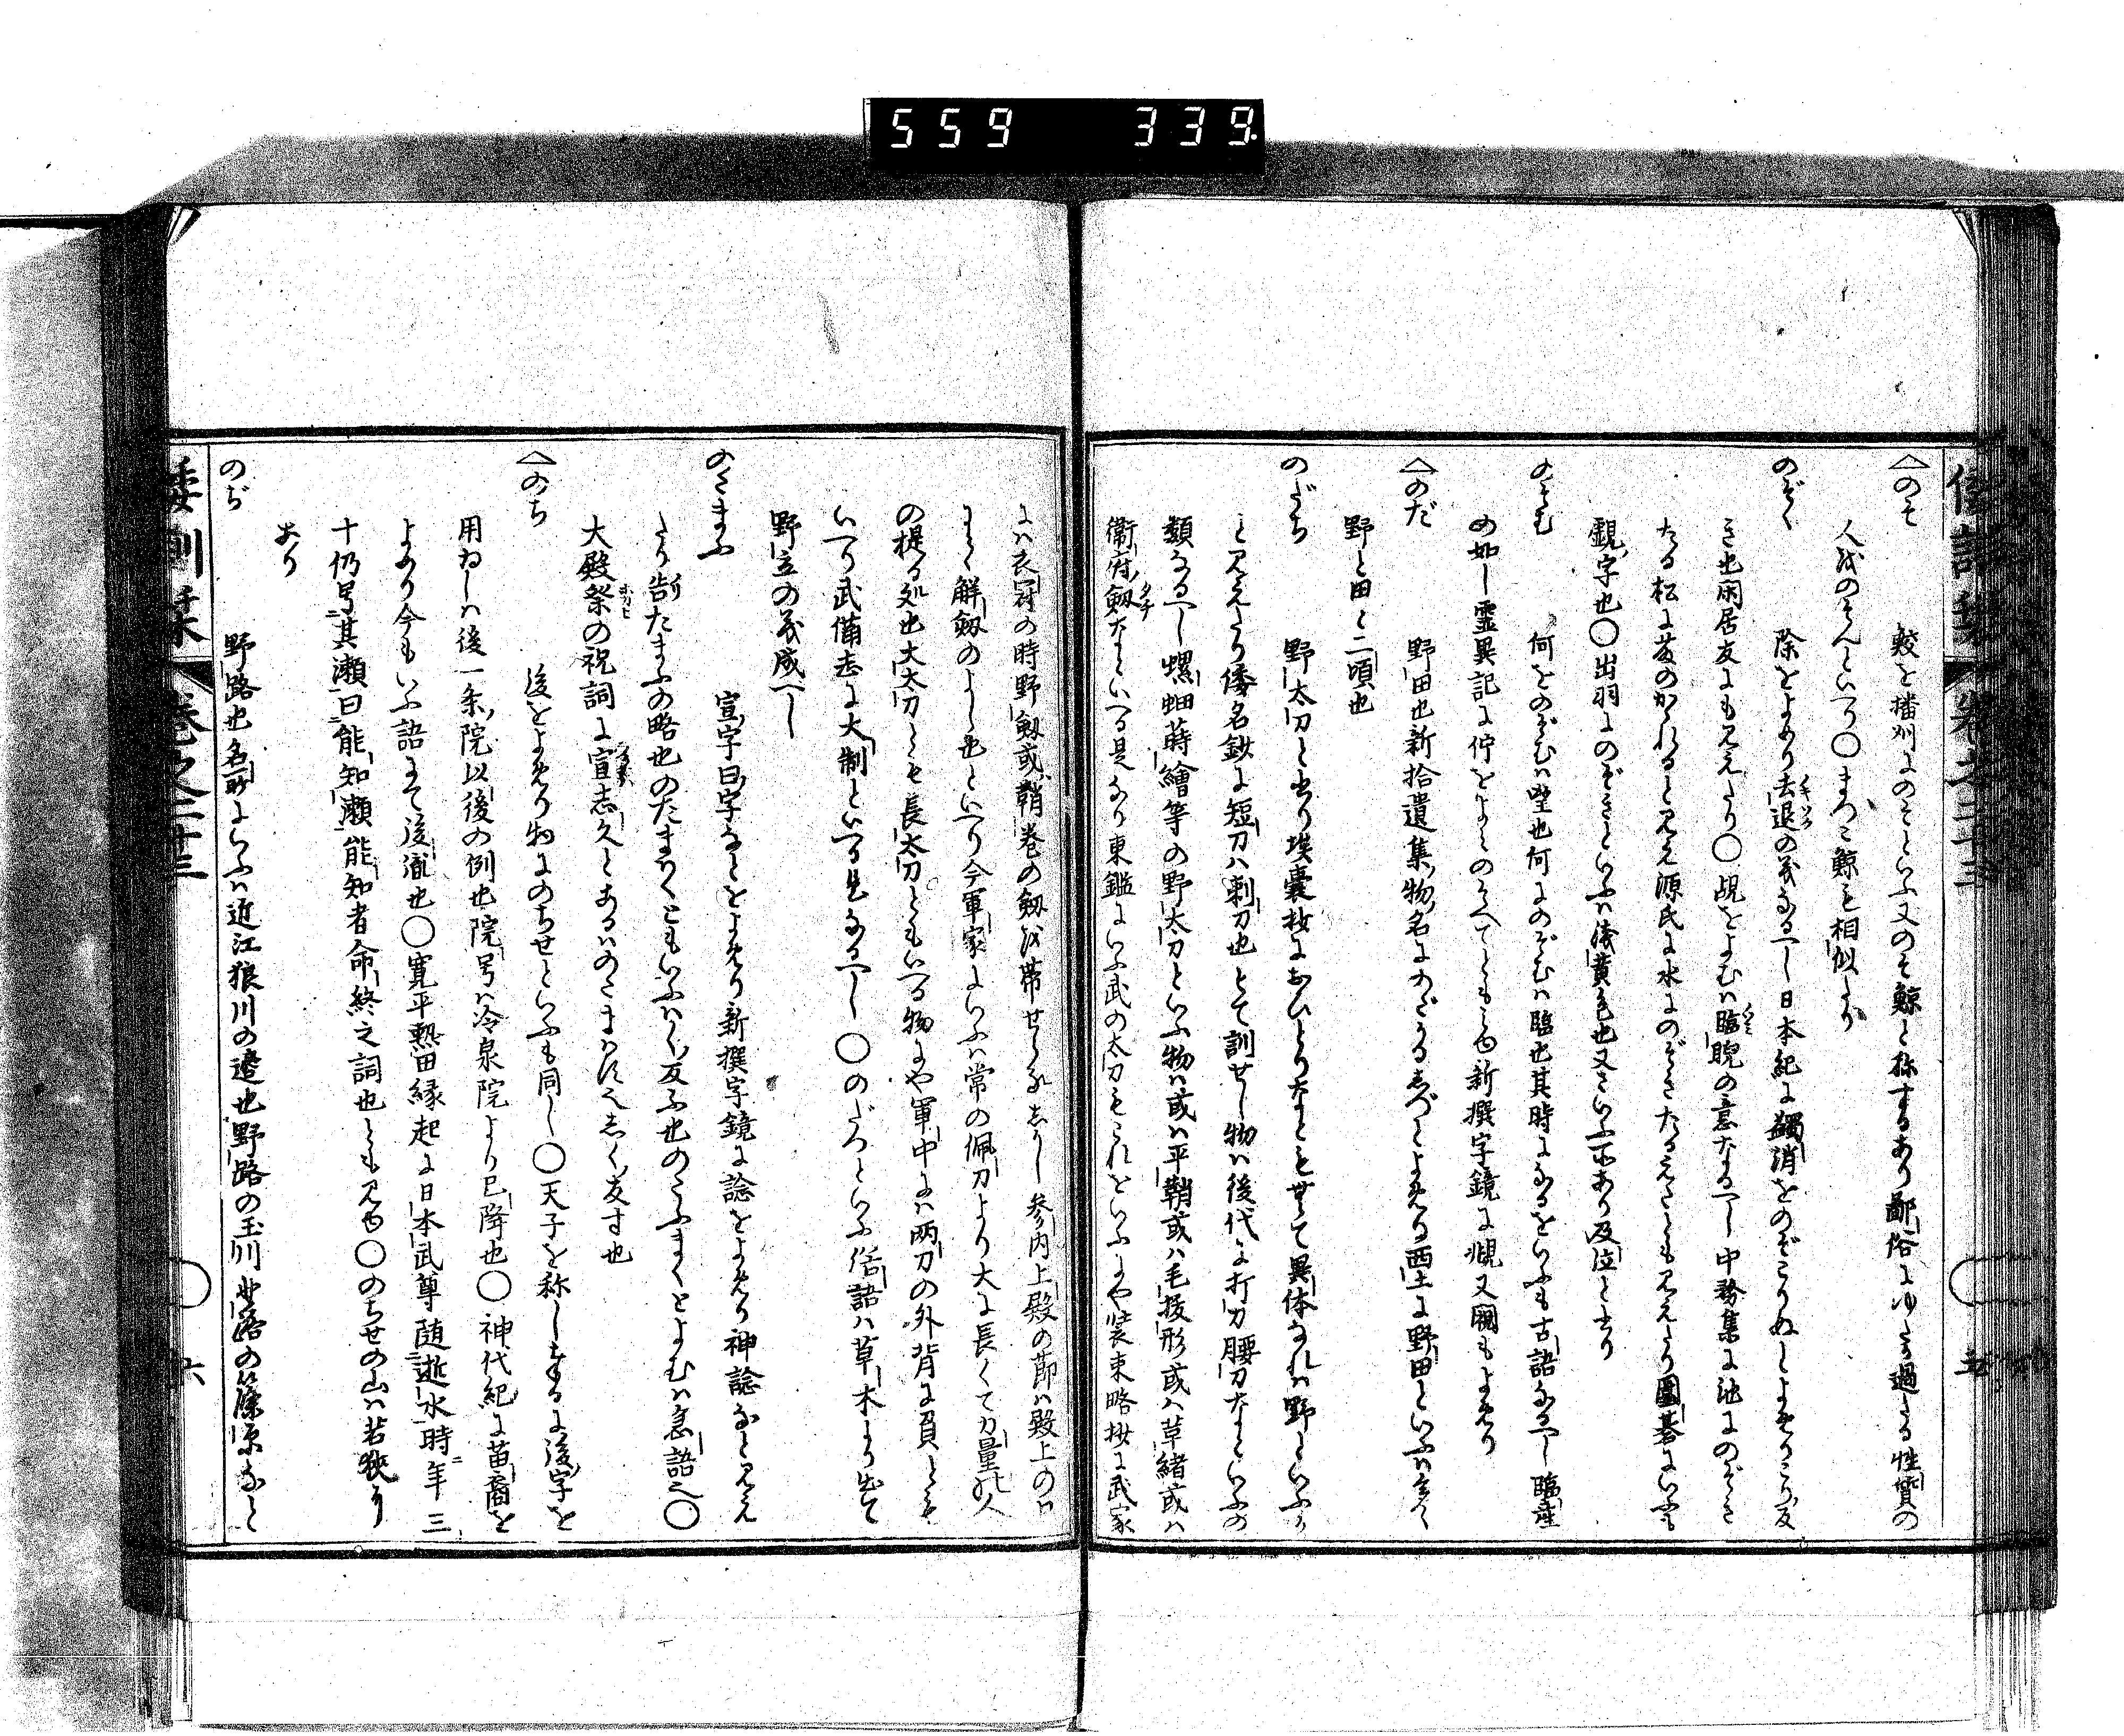 559 339
倭訓栞 巻之二十三
へのそ 鮫を播州にのそといふ又のそ鯨と称するあり鄙俗にゆき過たる性質の
人をのそんといへり○まつこ鯨も相似たり
のぞく 除をよめり去退の義なるへし日本紀に蠲消をのぞこりぬとよめりこり反
き也閑居友にも見えたり○覘をよむは臨睨の意なるへし中務集に池にのぞき
たる松に藤のかゝれると見え源氏に水にのぞきたるえさとも見えたり圍碁にいふも
覗字也○出羽にのぞきといふは浅黄色也又さいふ所あり及位と書り
のそむ 何をのぞむは望也何にのぞむは臨也其時になるをいふも古語なるへし臨産
の如し霊異記に佇をよくのそへてともみゆ新撰字鏡に覘又闚もよめり
へのだ 野田也新拾遺集物名にのざるしづとよめる西土に野田といふは全く
野と田と二項也
のだち 野太刀と書り埃嚢抄におひとりなとも せて異体なれは野といふか
と見えたり倭名鈔に短刀ハ剌刀也とて訓せし物は後代に打刀腰刀なといふの
類なるへし螺鈿蒔繪等の野太刀といふ物は或は平鞘或ハ毛抜形或ハ草緒或は
衞府劔なといへる是なり東鑑にいふ武の太刀もこれをいふにや装束略抄に武家
には衣冠の時野劔或鞘巻の劔を帯せらるましし参内上殿の節は殿上の口
にて解劔のよし也といへり今軍家にいふは常の佩刀より大に長くて力量の人
の提る処也大太刀とも長太刀ともいへる物にや軍中には两刀の外背に負とも
いへり武備志に大制といへる是なるへし○のだつといふ俗語ハ草木より出て
野立の義成へし
のたまふ 宣字曰字なとをよめり新撰字鏡に諗をよめり神諗なと見え
たり告たまふの略也のたまはくともいふはく反ふ也のたふまくとよむは急語也○
大殿祭の祝詞に宣志久とあるはのたまはす也しく反す也
へのち 後をよめり物にのちせといふも同し○天子を称しまつるに後字を
用ゐしは後一条院以後の例也院号は冷泉院より已降也○神代紀に苗裔を
よめり今もいふ語にて後胤也○寛平熱田縁起に日本武尊随逝水時年三
十仍号其瀬曰能知瀬能知者命終之詞也とも見ゆ○のちせの山は若狭に
あり
のぢ 野路也名所にいふは近江狼川の邊也野路の玉川野路の篠原なと
倭訓栞 巻之二十三 六